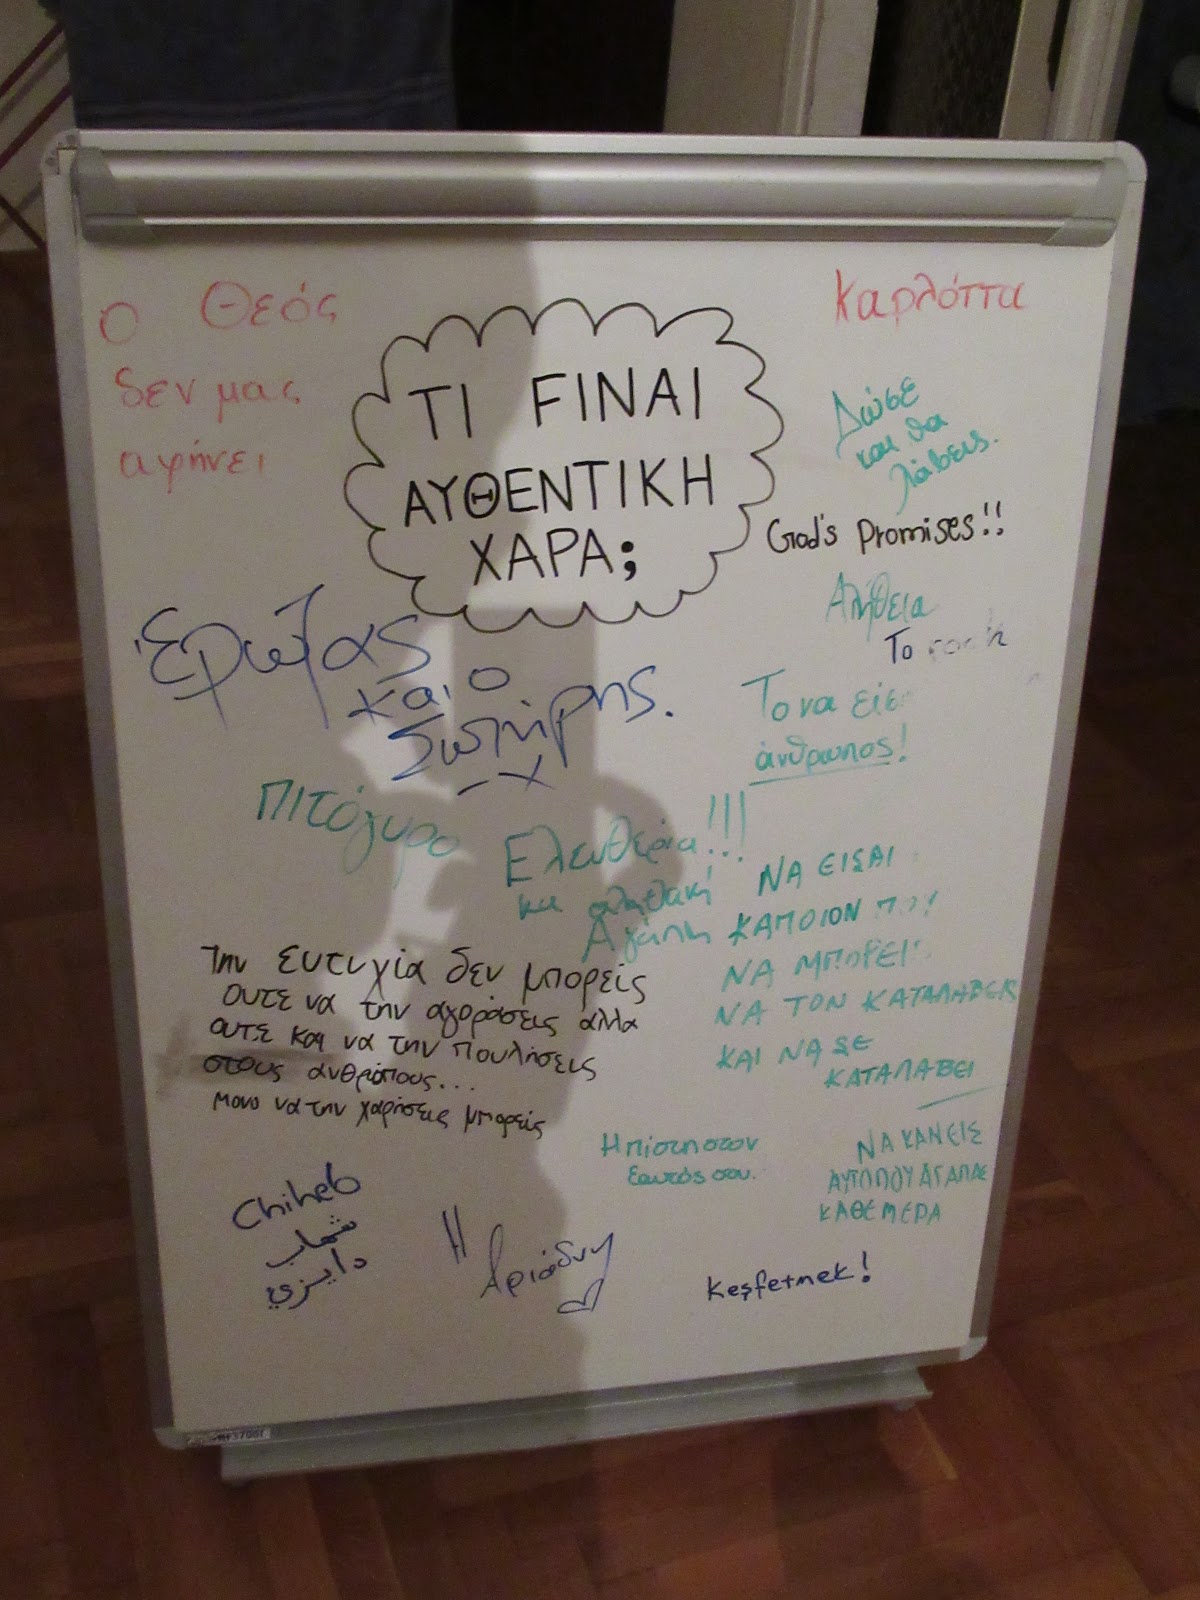 Ο Θεός
δεν μας
αφήνει
ΤΙ ΕΙΝΑΙ
ΑΥΘΕΝΤΙΚΗ
ΧΑΡΑ;
Καρλόττα
Δώσε
και θα
λάβεις.
God's Promises!!
Αλήθεια
Το rock
Έρωτας
και ο
Σωτήρης.
Το να είσ
άνθρωπος!
Πιτόγυρο
Ελευθερία!!!
και αληθινή
Αγάπη
ΝΑ ΕΙΣΑΙ
ΚΑΠΟΙΟΝ ΠΟΥ
ΝΑ ΜΠΟΡΕΙΣ
ΝΑ ΤΟΝ ΚΑΤΑΛΑΒΕΙΣ
ΚΑΙ ΝΑ ΣΕ
ΚΑΤΑΛΑΒΕΙ
Την ευτυχία δεν μπορείς
ουτε να την αγοράσεις άλλα
ουτε και να την πουλήσεις
στους ανθρόπους...
μονο να την χαρήσεις μπορείς
Η πίστη στον
εαυτός σου.
ΝΑ ΚΑΝΕΙΣ
ΑΥΤΟ ΠΟΥ ΑΓΑΠΑΣ
ΚΑΘΕ ΜΕΡΑ
Chiheb
شهاب
دايزي
Η
Αριάδνη
Keşfetmek!